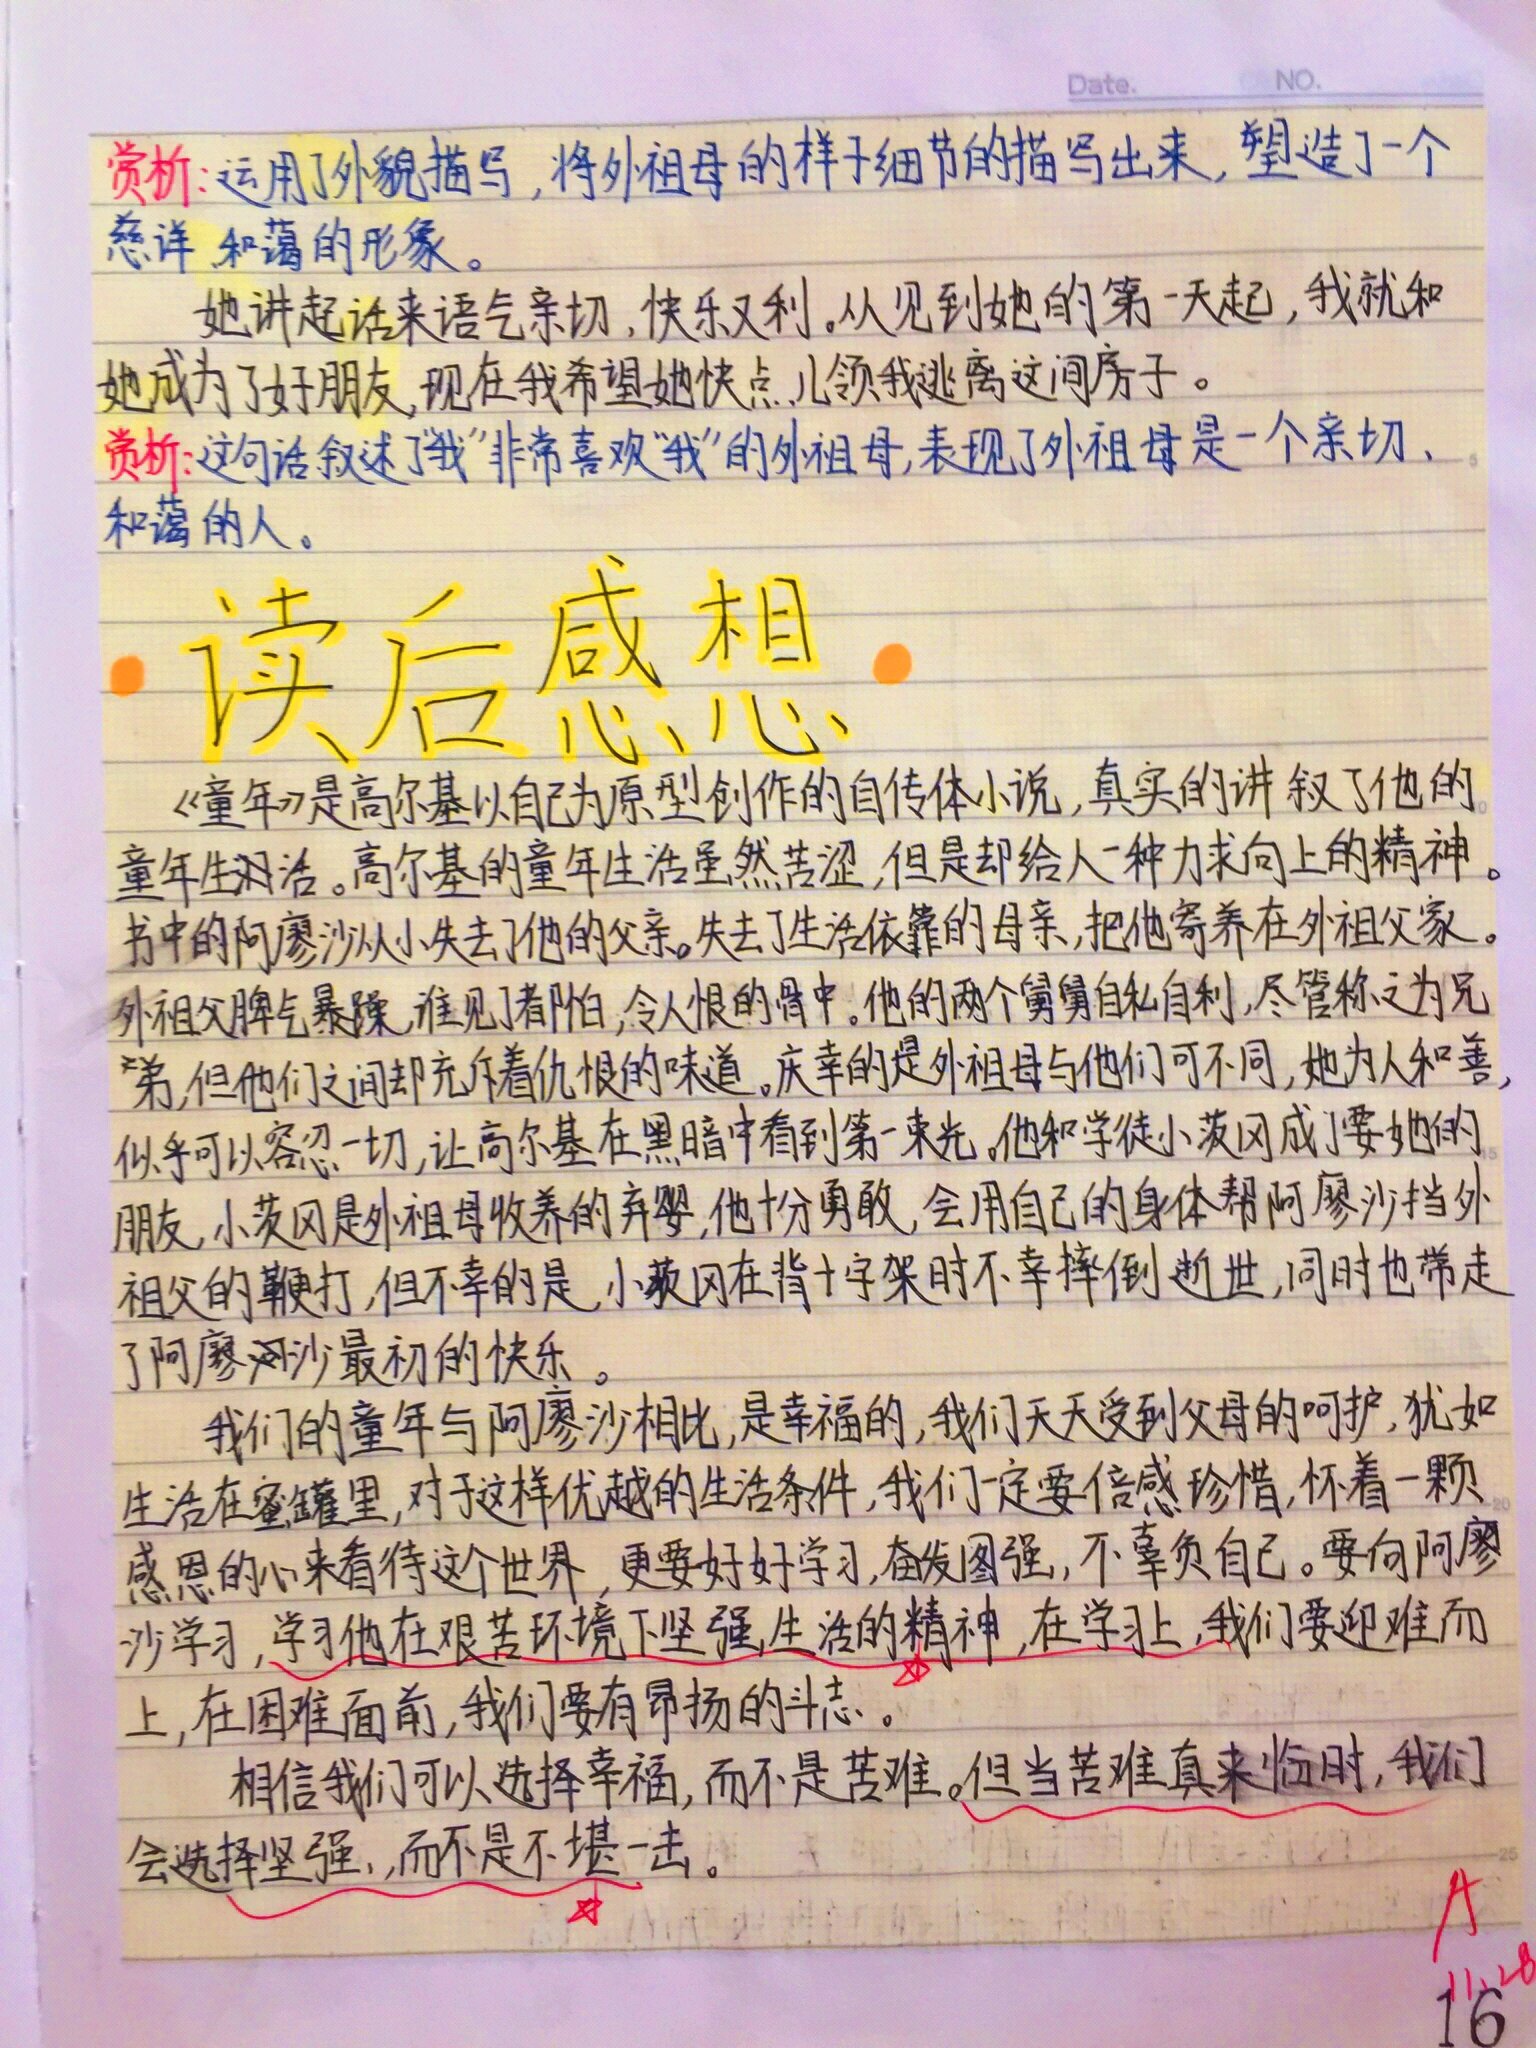 Date. NO.
赏析:运用了外貌描写,将外祖母的样子细节的描写出来,塑造了一个
慈详、和蔼的形象。
她讲起话来语气亲切,快乐又利。从见到她的第一天起,我就和
她成为了好朋友,现在我希望她快点儿领我逃离这间房子。
赏析:这句话叙述了“我”非常喜欢“我”的外祖母,表现了外祖母是一个亲切、
和蔼的人。
读后感想
《童年》是高尔基以自己为原型创作的自传体小说,真实的讲叙了他的
童年生活。高尔基的童年生活虽然苦涩,但是却给人一种力求向上的精神。
书中的阿廖沙从小失去了他的父亲。失去了生活依靠的母亲,把他寄养在外祖父家。
外祖父脾气暴躁,谁见了都怕,令人恨的骨中。他的两个舅舅自私自利,尽管称之为兄
弟,但他们之间却充斥着仇恨的味道。庆幸的是外祖母与他们可不同,她为人和善,
似乎可以容忍一切,让高尔基在黑暗中看到第一束光。他和学徒小茨冈成了要她的
朋友,小茨冈是外祖母收养的弃婴,他十分勇敢,会用自己的身体帮阿廖沙挡外
祖父的鞭打,但不幸的是,小茨冈在背十字架时不幸摔倒逝世,同时也带走
了阿廖沙最初的快乐。
我们的童年与阿廖沙相比,是幸福的,我们天天受到父母的呵护,犹如
生活在蜜罐里,对于这样优越的生活条件,我们一定要倍感珍惜,怀着一颗
感恩的心来看待这个世界,更要好好学习,奋发图强,不辜负自己。要向阿廖
沙学习,学习他在艰苦环境下坚强生活的精神,在学习上,我们要迎难而
上,在困难面前,我们要有昂扬的斗志。
相信我们可以选择幸福,而不是苦难。但当苦难真来临时,我们
会选择坚强,而不是不堪一击。
A
11.28
16